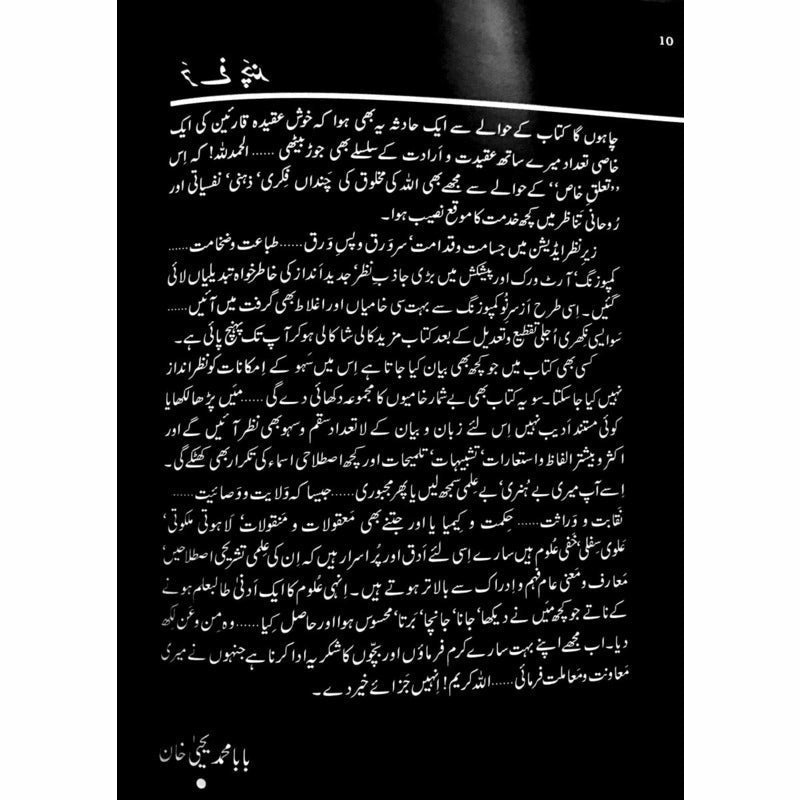 10
چاہوں گا کتاب کے حوالے سے ایک حادثہ یہ بھی ہوا کہ خوش عقیدہ قارئین کی ایک
خاصی تعداد میرے ساتھ عقیدت و اَرادت کے سلسلے بھی جوڑ بیٹھی ...... الحمدللہ! کہ اِس
’’تعلقِ خاص‘‘ کے حوالے سے مجھے بھی اللہ کی مخلوق کی چَنداں فِکری‘ ذہنی‘ نفسیاتی اور
رُوحانی تَناظر میں کچھ خدمت کا موقع نصیب ہوا۔
زیرِ نظر ایڈیشن میں جسامت وقدامت‘ سرِوَرق و پسِ وَرق...... طباعت و ضخامت......
کمپوزنگ‘ آرٹ ورک اور پیشکش میں بڑی جاذبِ نظر‘ جدید اَنداز کی خاطر خواہ تبدیلیاں لائی
گئیں۔ اِسی طرح اَز سرِ نُو کمپوزنگ سے بہت سی خامیاں اور اغلاط بھی گرفت میں آئیں......
سَو ایسی نِکھری اُجلی تقطیع و تعدیل کے بعد کتاب مزید کالی شا کالی ہو کر آپ تک پہنچ پائی ہے۔
کسی بھی کتاب میں جو کچھ بھی بیان کیا جاتا ہے اِس میں سَہو کے اِمکانات کو نظر انداز
نہیں کیا جاسکتا۔ سو یہ کتاب بھی بے شمار خامیوں کا مجموعہ دکھائی دے گی ...... مَیں پڑھا لکھا یا
کوئی مستند اَدیب نہیں اِس لئے زبان و بیان کے لاتعداد سقم و سہو بھی نظر آئیں گے اور
اکثر و بیشتر الفاظ و استعارات‘ تشبیہات‘ تلمیحات اور کچھ اصطلاحی اسماء کی تکرار بھی کھٹکے گی۔
اِسے آپ میری بے ہُنری‘ بے عِلمی سمجھ لیں یا پھر مجبوری ...... جیسا کہ وَلایت و وَصائیت......
نَقابت و وَراثت...... حِکمت و کیمیا یا اور جتنے بھی مَعقولات و مَنقولات‘ لَاہوتی ملکوتی‘
عَلوی سِفلی‘ خَفی عُلوم ہیں سارے اِسی لئے اَدق اور پُراسرار ہیں کہ اِن کی عِلمی تشریحی اصطلاحیں‘
مَعارف و مَعنی عام فہم و اِدراک سے بالاتر ہوتے ہیں۔ اِنہی عُلوم کا ایک اَدنیٰ طالبعلم ہونے
کے ناتے جو کچھ مَیں نے دیکھا‘ جانا‘ جانچا‘ بَرتا‘ محسوس ہوا اور حاصل کِیا...... وہ مِن و عَن لکھ
دیا۔ اب مجھے اپنے بہت سارے کرم فرماؤں اور بچّوں کا شکریہ ادا کرنا ہے جنہوں نے میری
مَعاونت و مَعاملت فرمائی...... اللہ کریم! اِنہیں جَزائے خیر دے۔
بابا محمد یحییٰ خان